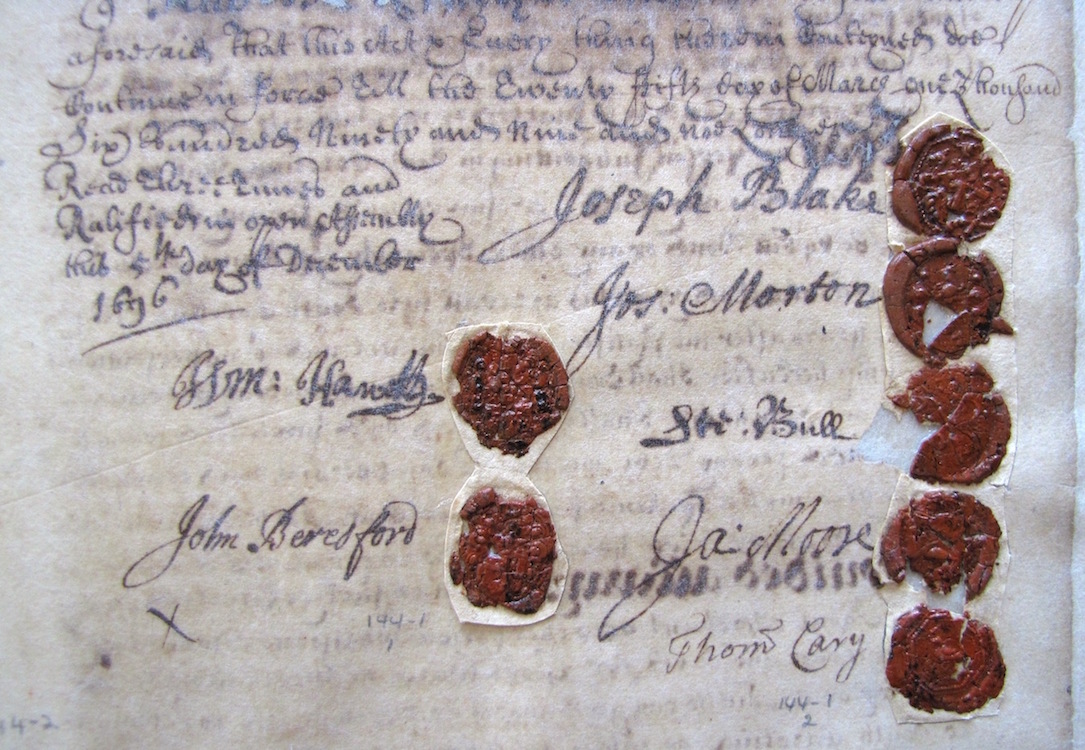 aforesaid, that this Act & Every thing therein Conteyned doe
Continue in force till the Twenty fifth day of March one Thousand
Six hundred Ninety and Nine and noe Longer
Read three times and
Ratified in open Assembly
this 5th day of December
1696
Joseph Blake
Jos: Morton
Wm: Hawett
Ste: Bull
John Beresford
Ja: Moore
X
144-1
Thom Cary
144-1
2
44-2